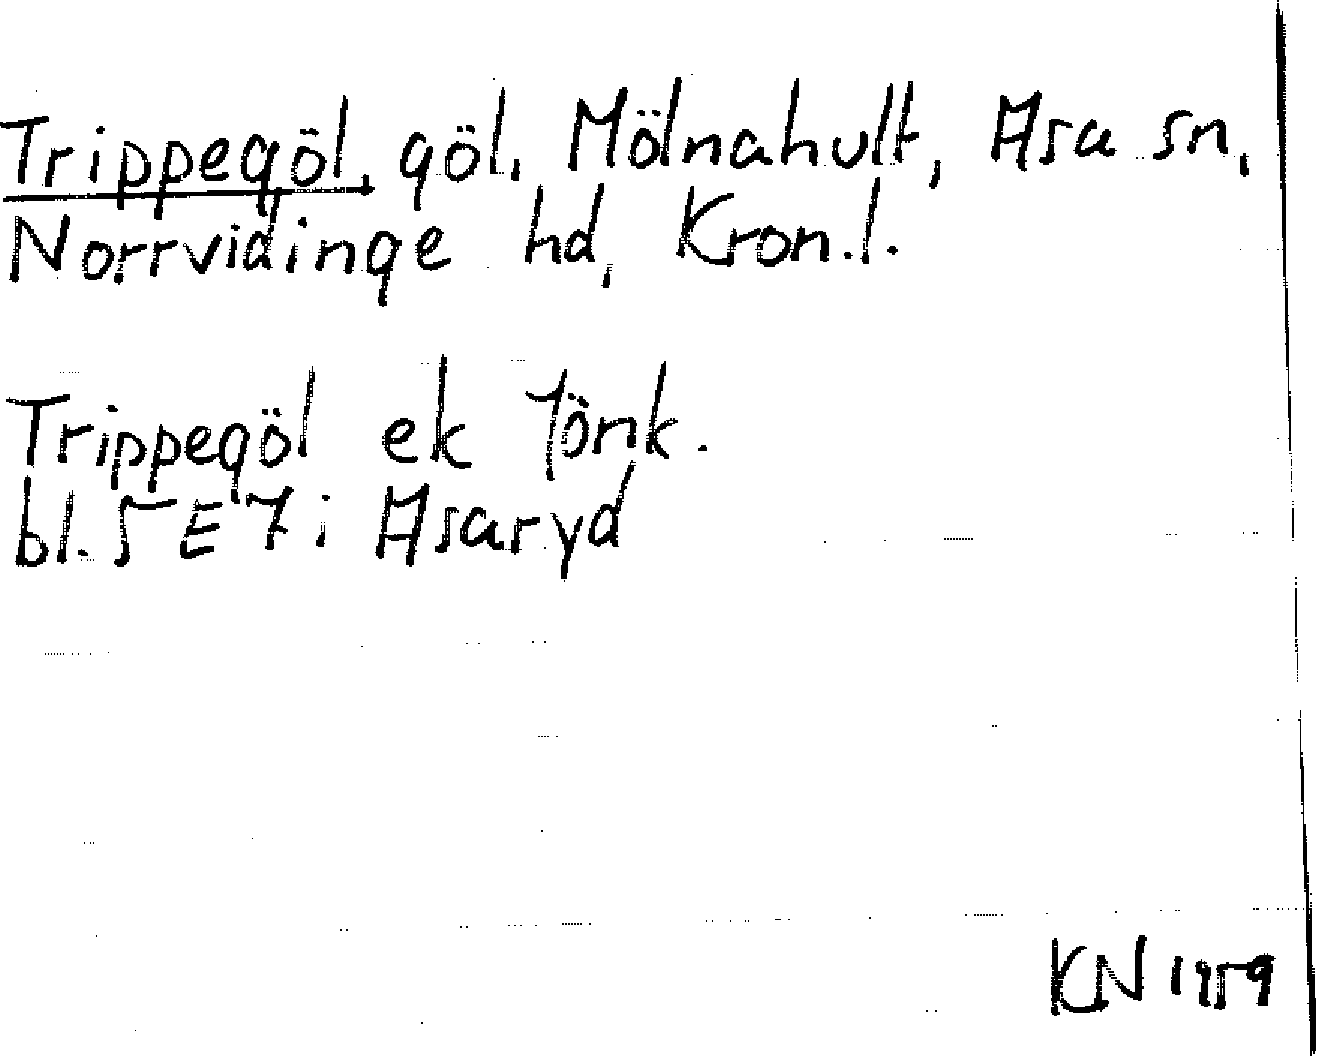 Trippegöl, göl, Mölnahult, Asa sn,
Norrvidinge hd, Kron.l.
Trippegöl ek Jönk.
bl. 5 E 7 i Asaryd
KN 1959